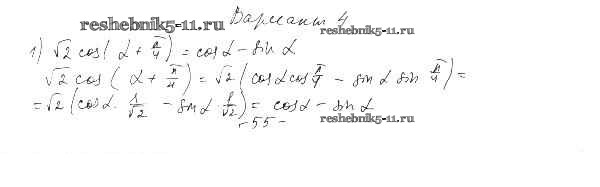 reshebnik5-11.ru Вариант 4
1) √2 cos(α + π/4) = cos α - sin α
√2 cos (α + π/4) = √2 (cos α cos π/4 - sin α sin π/4) =
= √2 (cos α · 1/√2 - sin α · 1/√2) = cos α - sin α
- 55 - reshebnik5-11.ru